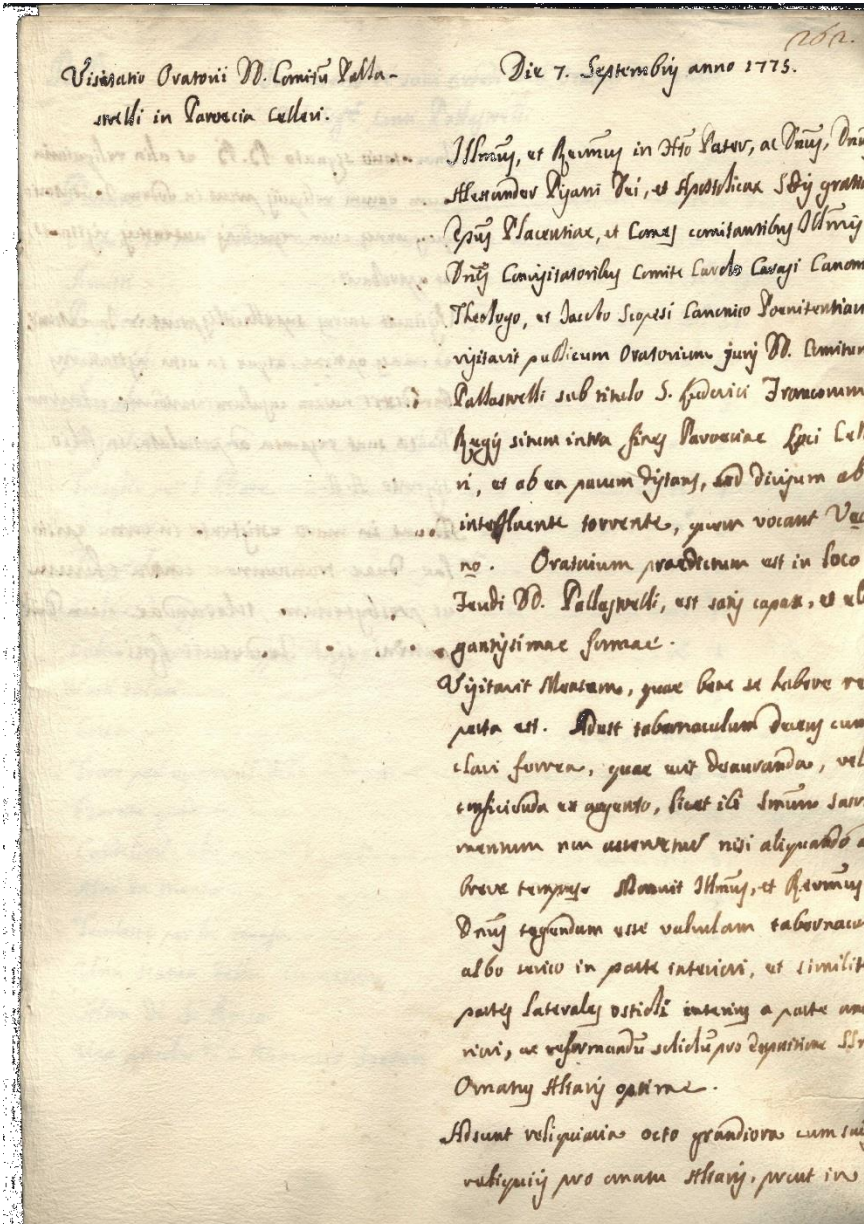 262.
Visitatio Oratorii DD. Comitũ Palla-
strelli in Paroecia Celleri.
Die 7. Septembris anno 1775.
Illmus, et Revmus in Xto Pater, ac Dnus, Dnu
Alexander Pisani Dei, et Apostolicae Sedis grati
Epus Placentiae, et Comes comitantibus Illmis
Dnis Convisitatoribus Comite Carolo Casasi Canon
Theologo, et Jacobo Scopesi Canonico Poenitentiar
visitavit publicum Oratorium juris DD. Comitum
Pallastrelli sub titulo S. Ludovici Francorum
Regis situm intra fines Paroeciae Loci Cel
ri, et ab ea parum distans, sed divisum ab
interfluente torrente, quem vocant
no. Oratorium praedictum est in loco
Feudi DD. Pallastrelli, est satis capax, et el
gantissimae formae.
Visitavit Mensam, quae bene se habere re
perta est. Adest tabernaculum decens cum
clavi ferrea, quae erit deauranda, vel
conficienda ex argento, licet ibi Smum Sacr
mentum non asservetur nisi aliquando a
breve tempus. Monuit Illmus, et Revmus
Dnus tegendam esse valvulam tabernacu
albo serico in parte interiori, et similit
partes laterales ostioli interius a parte an
riori, ac reformandũ pro expositione SSm
Ornatus Altaris optime.
Adsunt reliquiaria octo grandiora cum suis
reliquiis pro ornatu Altaris, prout in